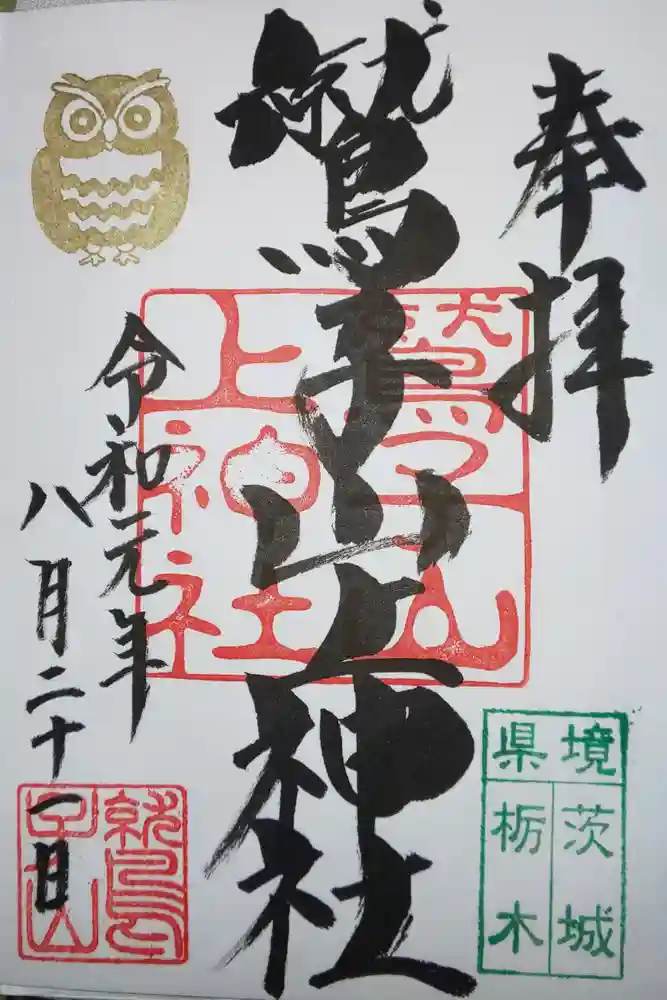 奉拝
鷲子山上神社
令和元年
八月二十一日
鷲子山
上神社
鷲
子山
県境
茨城
栃木